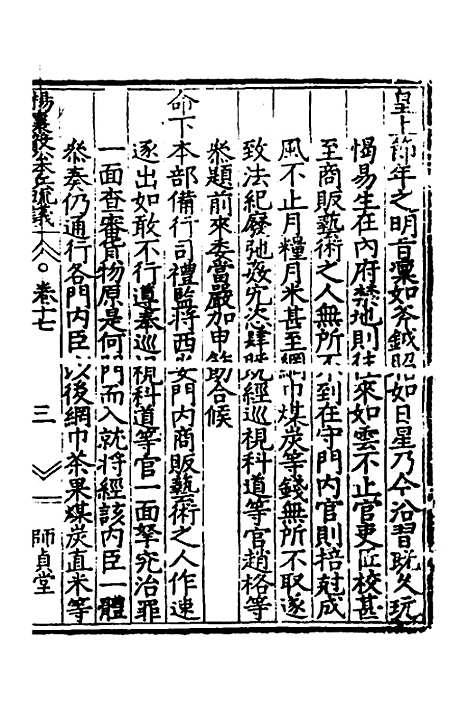 皇上節年之明旨凜如斧鉞昭如日星乃今沿習既久玩
愒易生在內府禁地則往來如雲不止官吏匠校甚
至商販藝術之人無所不到在守門內官則掊尅成
風不止月糧月米甚至網巾煤炭等錢無所不取遂
致法紀廢弛姦宄恣肆既經巡視科道等官趙格等
參題前來委當嚴加申飭合候
命下本部備行司禮監將西安門內商販藝術之人作速
逐出如敢不行遵奉巡視科道等官一面拏究治罪
一面查審貨物原是何門而入就將經該內臣一體
參奏仍通行各門內臣以後網巾茶果煤炭直米等
楊襄毅公本兵疏議 卷十七 三 師貞堂